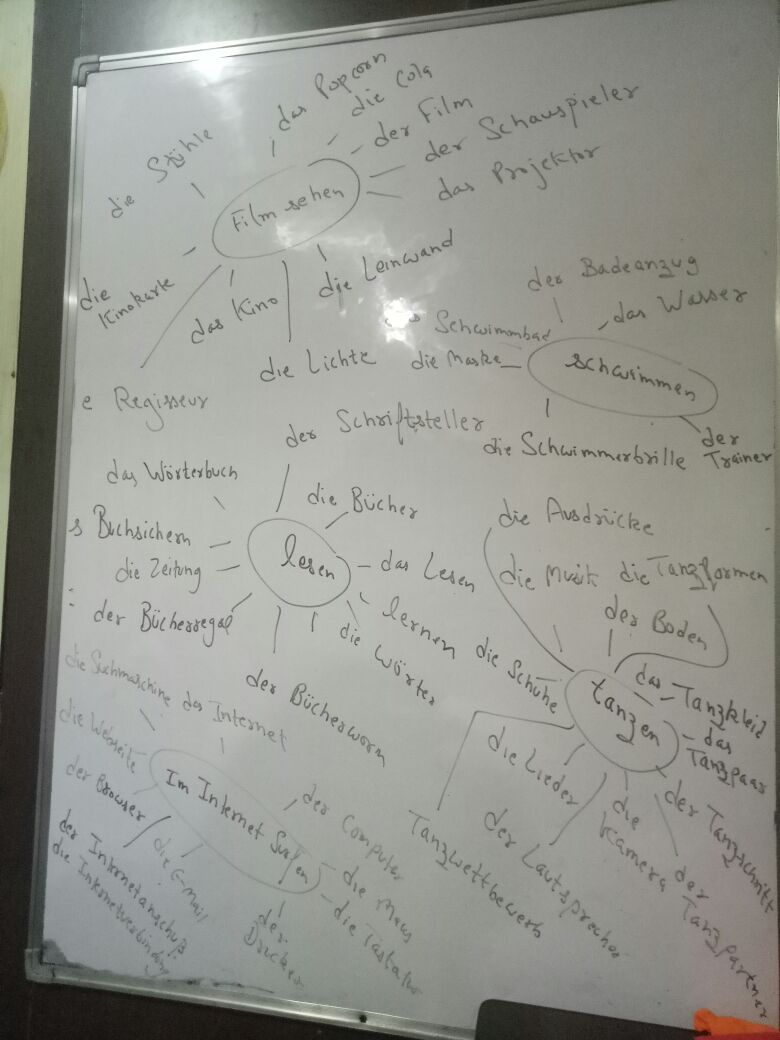 das Popcorn
die Cola
der Film
der Schauspieler
das Projektor
die Stühle
Film sehen
die Kinokarte
das Kino
die Leinwand
die Lichte
e Regisseur
der Badeanzug
das Wasser
Schwimmbad
die Maske
schwimmen
die Schwimmerbrille
der Trainer
der Schriftsteller
das Wörterbuch
die Bücher
s Buchsichern
die Zeitung
lesen
das Lesen
lernen
der Bücherregal
die Wörter
der Bücherworm
die Ausdrücke
die Musik
die Tanzformen
der Boden
die Schuhe
tanzen
das Tanzkleid
das Tanzpaar
die Lieder
der Tanzschnitt
die Kamera
der Tanzpartner
der Lautsprecher
Tanzwettbewerb
die Suchmaschine
das Internet
die Webseite
der Browser
Im Internet Surfen
der Computer
die Maus
die Tastatur
der Drucker
die E-Mail
der Internetanschuß
die Internetverbindung